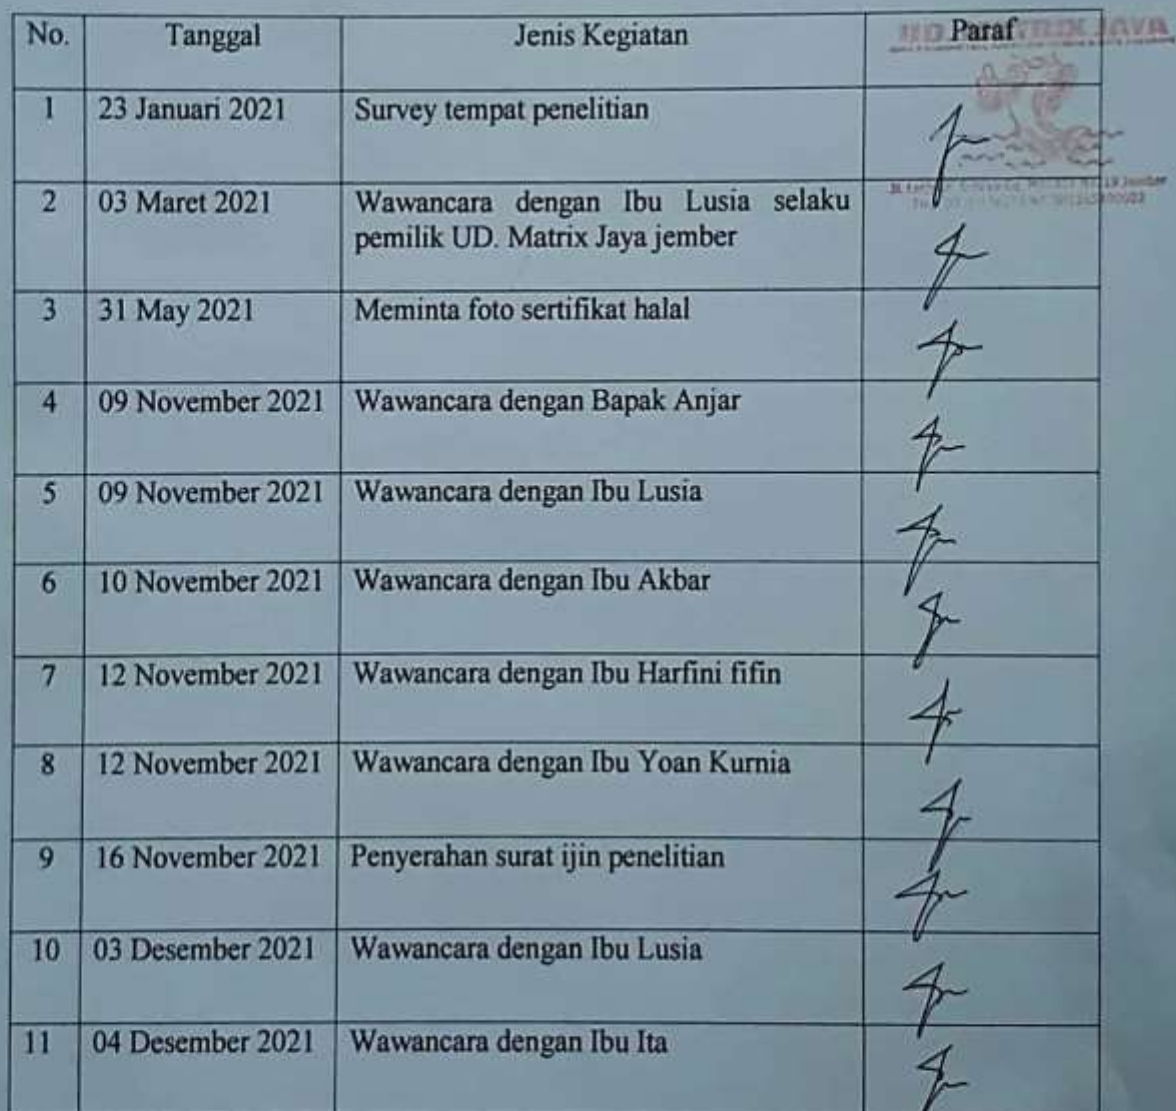 No. Tanggal Jenis Kegiatan Paraf
1 23 Januari 2021 Survey tempat penelitian
2 03 Maret 2021 Wawancara dengan Ibu Lusia selaku
pemilik UD. Matrix Jaya jember
3 31 May 2021 Meminta foto sertifikat halal
4 09 November 2021 Wawancara dengan Bapak Anjar
5 09 November 2021 Wawancara dengan Ibu Lusia
6 10 November 2021 Wawancara dengan Ibu Akbar
7 12 November 2021 Wawancara dengan Ibu Harfini fifin
8 12 November 2021 Wawancara dengan Ibu Yoan Kurnia
9 16 November 2021 Penyerahan surat ijin penelitian
10 03 Desember 2021 Wawancara dengan Ibu Lusia
11 04 Desember 2021 Wawancara dengan Ibu Ita